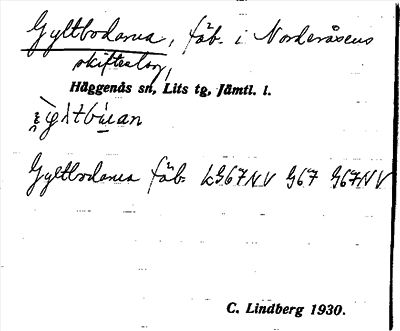 Gyltbodarna, fäb. i Norderåsens
skifteslag,
Häggenås sn, Lits tg, Jämtl. l.
Gyltbodarna fäb. LG67NV G67 G67NV
C. Lindberg 1930.